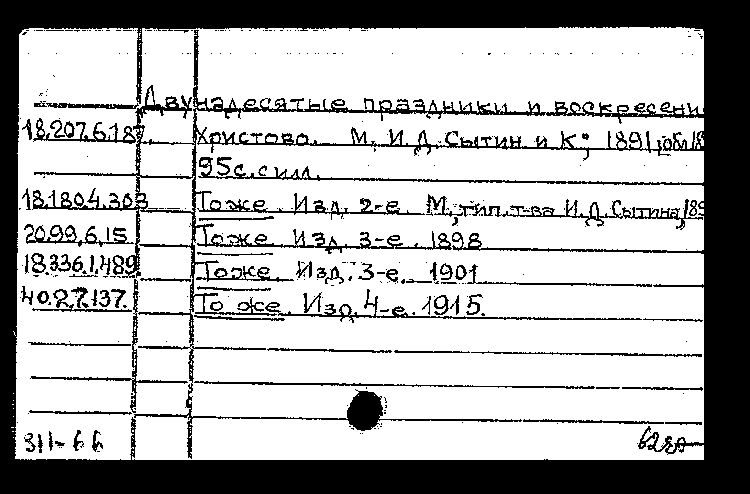 Двунадесятые праздники и воскресени
18.207.6.187. Христово. М., И.Д. Сытин и К°, 1891, обл. 18
95 с. с илл.
18.180.4.303 То же. Изд. 2-е. М., тип. т-ва И.Д. Сытина, 189
20.99.6.15 То же. Изд. 3-е. 1898
18.336.1.489 То же. Изд. 3-е. 1901
40.27.137. То же. Изд. 4-е. 1915.
311-66